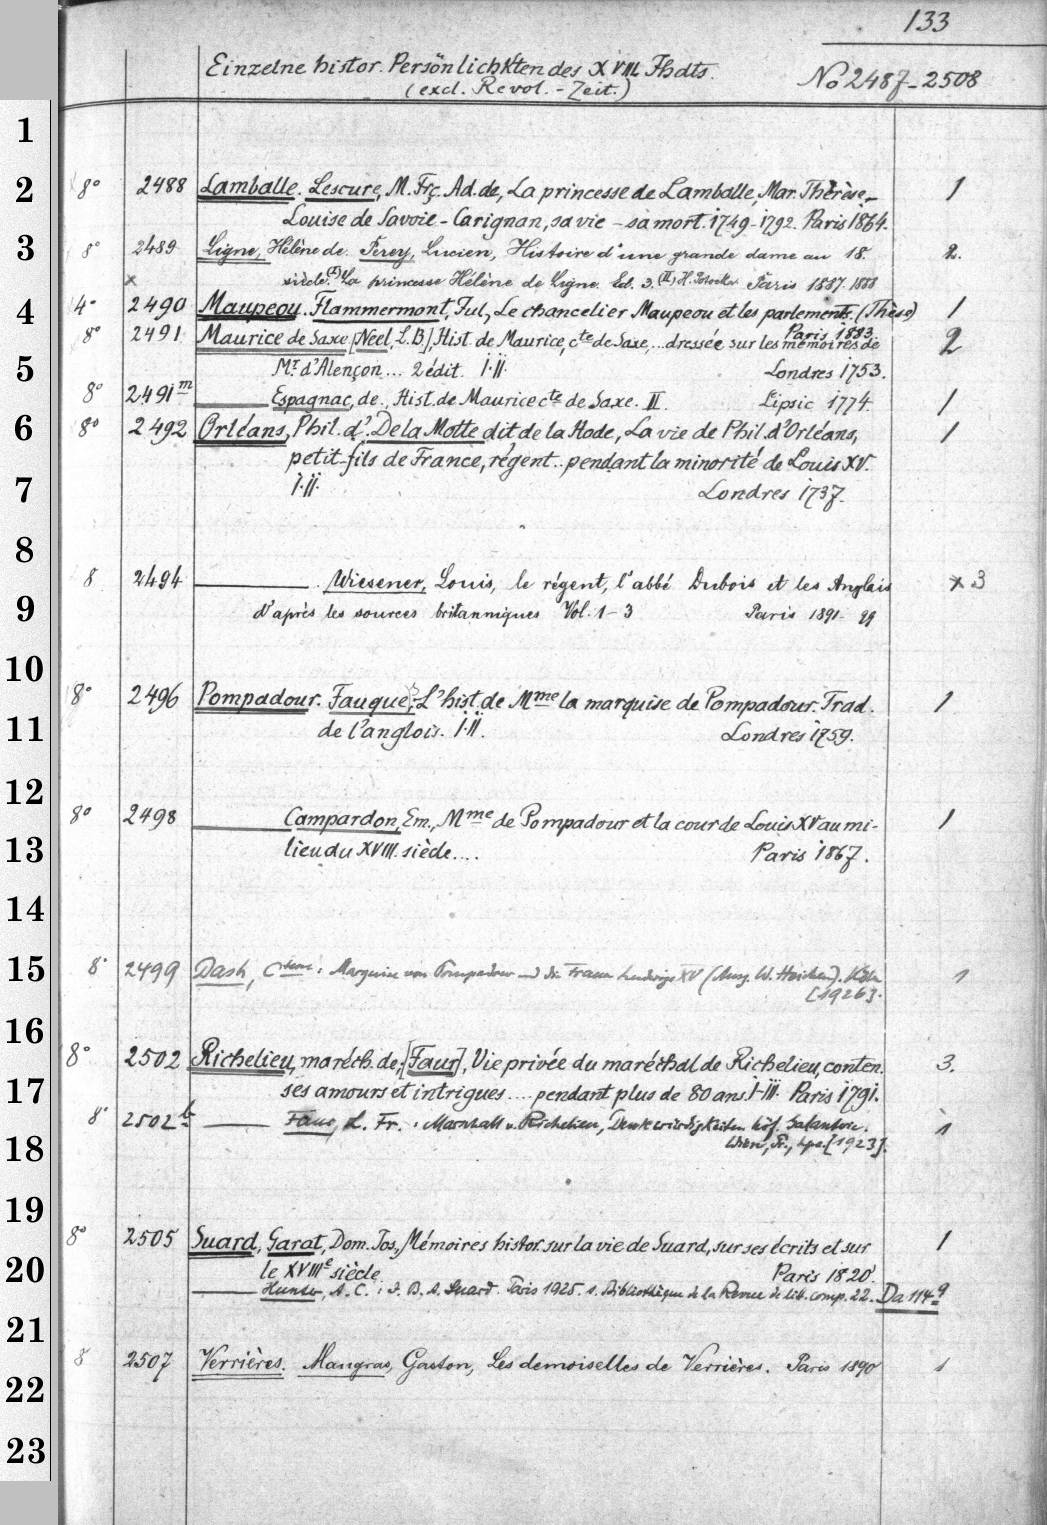 133
Einzelne histor. Persönlichkten des XVIII. Jhdts.
(excl. Revol.-Zeit.)
No 2487-2508
1
2
3
4
5
6
7
8
9
10
11
12
13
14
15
16
17
18
19
20
21
22
23
8° 2488 Lamballe. Lescure, M. Frç. Ad. de, La princesse de Lamballe, Mar. Thérèse- 1
Louise de Savoie-Carignan, sa vie - sa mort. 1749-1792. Paris 1864.
8° 2489 Ligne, Hélène de. Perey, Lucien, Histoire d'une grande dame au 18. 2.
x siècle. (I) La princesse Hélène de Ligne. Ed. 3. (II) H. Potocka Paris 1887. 1888
4° 2490 Maupeou. Flammermont, Jul., Le chancelier Maupeou et les parlements. (Thèse) 1
Paris 1883.
8° 2491 Maurice de Saxe, [Neel, L.B.], Hist. de Maurice, cte de Saxe, ... dressée sur les mémoires de 2
Mr. d'Alençon ... 2 édit. I.II. Londres 1753.
8° 2491m Espagnac, de, Hist. de Maurice cte de Saxe. II. Lipsic 1774. 1
8° 2492 Orléans, Phil. d'. De la Motte dit de la Hode, La vie de Phil. d'Orléans, 1
petit-fils de France, régent.. pendant la minorité de Louis XV.
I.II. Londres 1737.
8 2494 . Wiesener, Louis, le régent, l'abbé Dubois et les Anglais x 3
d'après les sources britanniques Vol. 1-3 Paris 1891-99
8° 2496 Pompadour. Fauque, L'hist. de Mme la marquise de Pompadour. Trad. 1
de l'anglois. I.II. Londres 1759.
8° 2498 Campardon, Em., Mme de Pompadour et la cour de Louis XV au mi- 1
lieu du XVIII. siècle.... Paris 1867.
8° 2499 Dash, : Marquise von Pompadour und die Frauen Ludwigs XV 1
[1926].
8° 2502 Richelieu, maréch. de, [Faur], Vie privée du maréchal de Richelieu, conten. 3.
ses amours et intrigues .... pendant plus de 80 ans. I-III. Paris 1791.
8° 2502b Faur, L. Fr. : Marschall v. Richelieu, Denkwürdigkeiten höf. Galanterie. 1
Wien, Pr., Lpz. [1923].
8° 2505 Suard, Garat, Dom. Jos., Mémoires histor. sur la vie de Suard, sur ses écrits et sur 1
le XVIIIe siècle. Paris 1820.
Hunter, A. C. : J. B. A. Suard. Paris 1925. s. Bibliothèque de la Revue de litt. comp. 22. Da 114 9
8 2507 Verrières. Maugras, Gaston, Les demoiselles de Verrières. Paris 1890 1